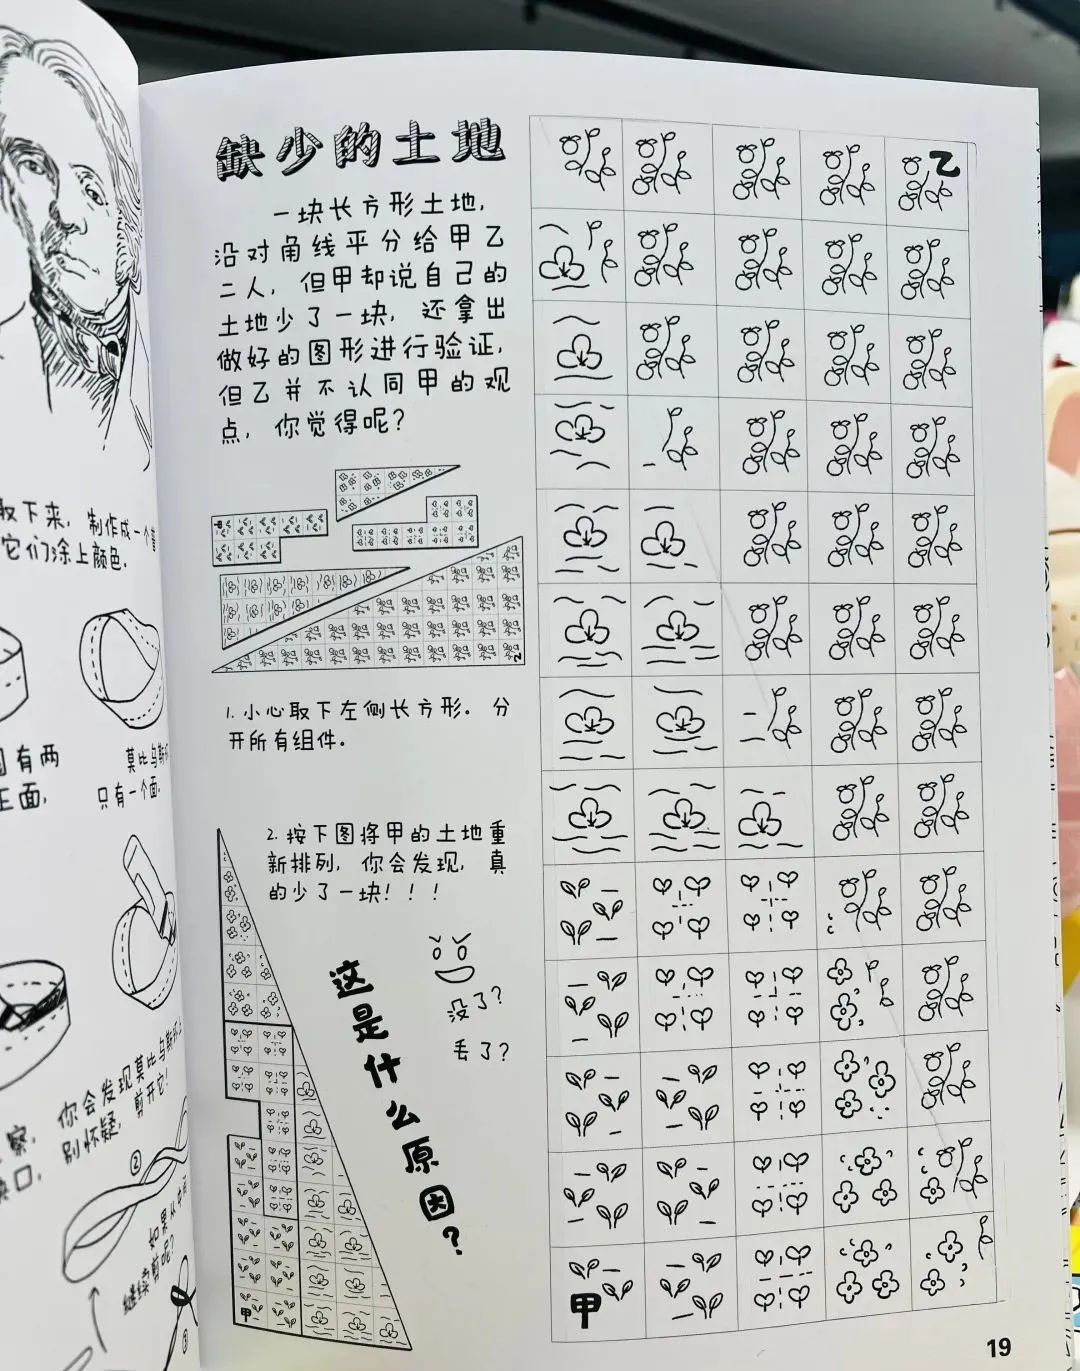 缺少的土地
一块长方形土地,
沿对角线平分给甲乙
二人,但甲却说自己的
土地少了一块,还拿出
做好的图形进行验证,
但乙并不认同甲的观
点,你觉得呢?
1.小心取下左侧长方形。分
开所有组件。
2.按下图将甲的土地重
新排列,你会发现,真
的少了一块!!!
这是什么原因?
没了?
丢了?
甲
乙
甲
乙
甲
19
取下来,制作成一个
它们涂上颜色.
有两
正面,
莫比乌斯
只有一个面.
察,你会发现莫比乌斯
缺口,别怀疑,剪开它!
②
如果从中间
继续剪呢?
③